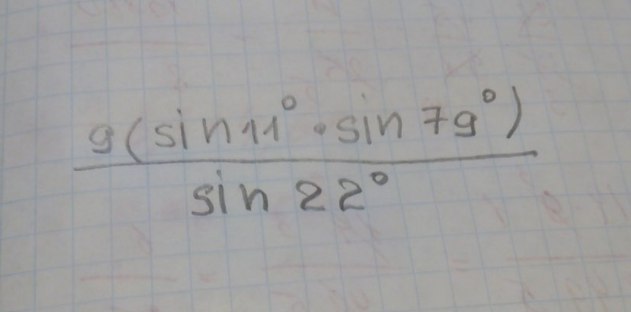 9(sin11°·sin79°)
sin22°